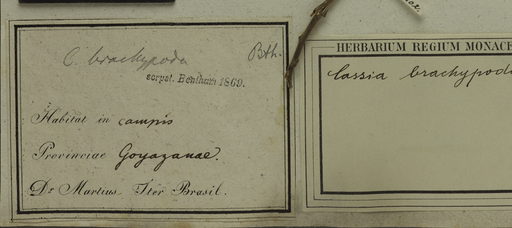 C. brachypoda Bth.
scrpst. Bentham 1869.
Habitat in campis
Provinciae Goyazanae.
Dr Martius Iter Brasil.
HERBARIUM REGIUM MONACE
Cassia brachypod